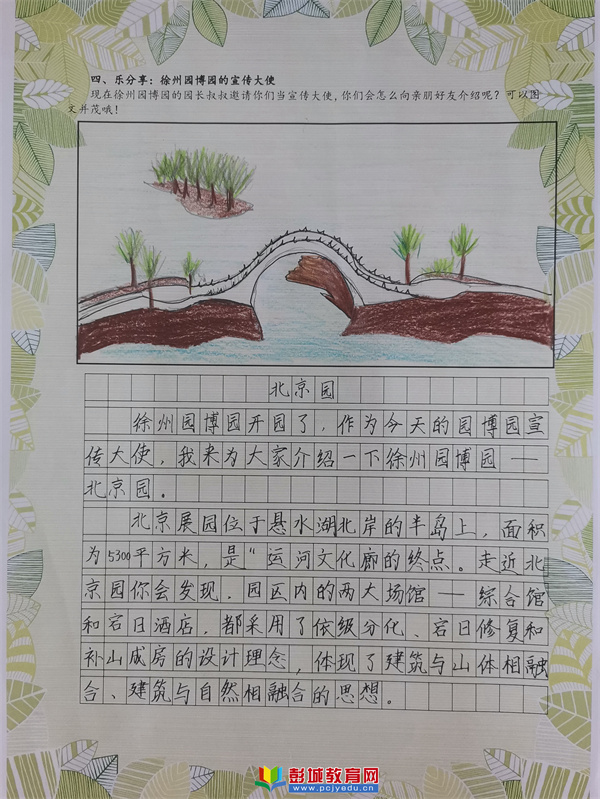 四、乐分享：徐州园博园的宣传大使
现在徐州园博园的园长叔叔邀请你们当宣传大使，你们会怎么向亲朋好友介绍呢？可以图
文并茂哦！
北京园
徐州园博园开园了，作为今天的园博园宣
传大使，我来为大家介绍一下徐州园博园——
北京园。
北京展园位于悬水湖北岸的半岛上，面积
为5300平方米，是"运河文化廊的终点。走近北
京园你会发现，园区内的两大场馆——综合馆
和宕口酒店，都采用了依级分化、宕口修复和
补山成房的设计理念，体现了建筑与山体相融
合、建筑与自然相融合的思想。
彭城教育网
www.pcjyedu.cn